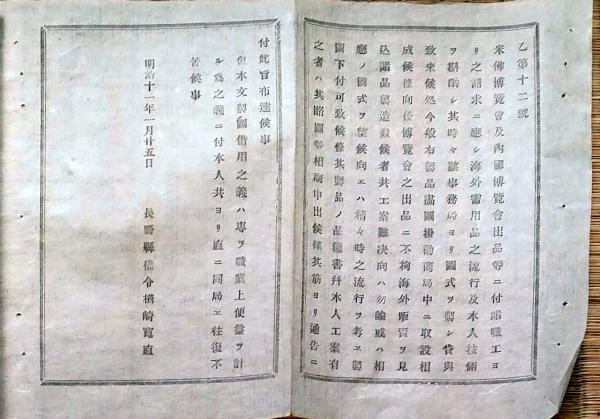 乙第十二號
米佛博覽會及內國博覽會出品等ニ付諸職工ヨ
リ之請求ニ應シ海外需用品之流行及本人技倆
ヲ斟酌シ其時々該事務局ヨリ圖式ヲ製シ貸與
致來候処今般右製品畵圖掛勸商局中ニ取設相
成候條向後博覽會之出品ニ不拘海外販賣ヲ見
込諸品製造致候者共工案難決向ハ勿論或ハ相
應ノ圖式ヲ望候向エハ精々時之流行ヲ考ヱ製
圖下付可致候條其製品ノ品種書幷本人工案有
之者ハ其略圖等相添申出候樣其筋ヨリ通告ニ
付此旨布達候事
但本文製圖借用之義ハ專ヲ職業上便益ヲ計
ル爲之義ニ付本人共ヨリ直ニ同局ヱ往復不
苦候事
明治十一年一月廿五日
長野縣權令楢崎寬直